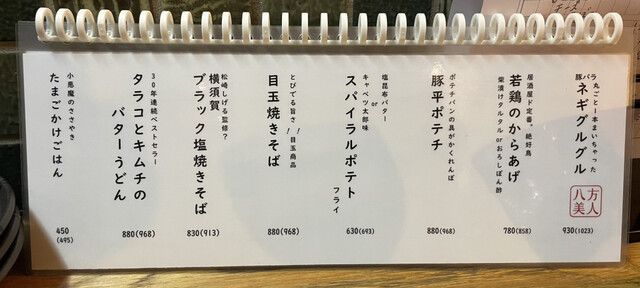 丸ごと一本まいちゃった
豚バラネギグルグル
八方美人
930(1023)
居酒屋ド定番。絶好鳥
若鶏のからあげ
柴漬けタルタル or おろしぽん酢
780(858)
ポテチパンの具がかくれんぼ
豚平ポテチ
880(968)
塩昆布バター
or
キャベツ太郎味
スパイラルポテト
フライ
630(693)
とびでる旨さ!! 目玉商品
目玉焼きそば
880(968)
松崎しげる監修?
横須賀
ブラック塩焼きそば
830(913)
30年連続ベストセラー
タラコとキムチの
バターうどん
880(968)
小悪魔のささやき
たまごかけごはん
450
(495)